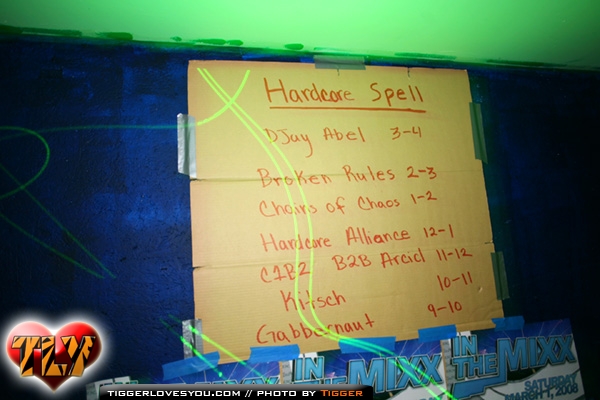 Hardcore Spell
DJay Abel 3-4
Broken Rules 2-3
Choirs of Chaos 1-2
Hardcore Alliance 12-1
C1B2 B2B Arcid 11-12
Kitsch 10-11
Gabbernaut 9-10
IN THE MIXX
IN THE MIXX
SATURDAY
MARCH 1, 2008
TLY
TIGGERLOVESYOU.COM // PHOTO BY TIGGER